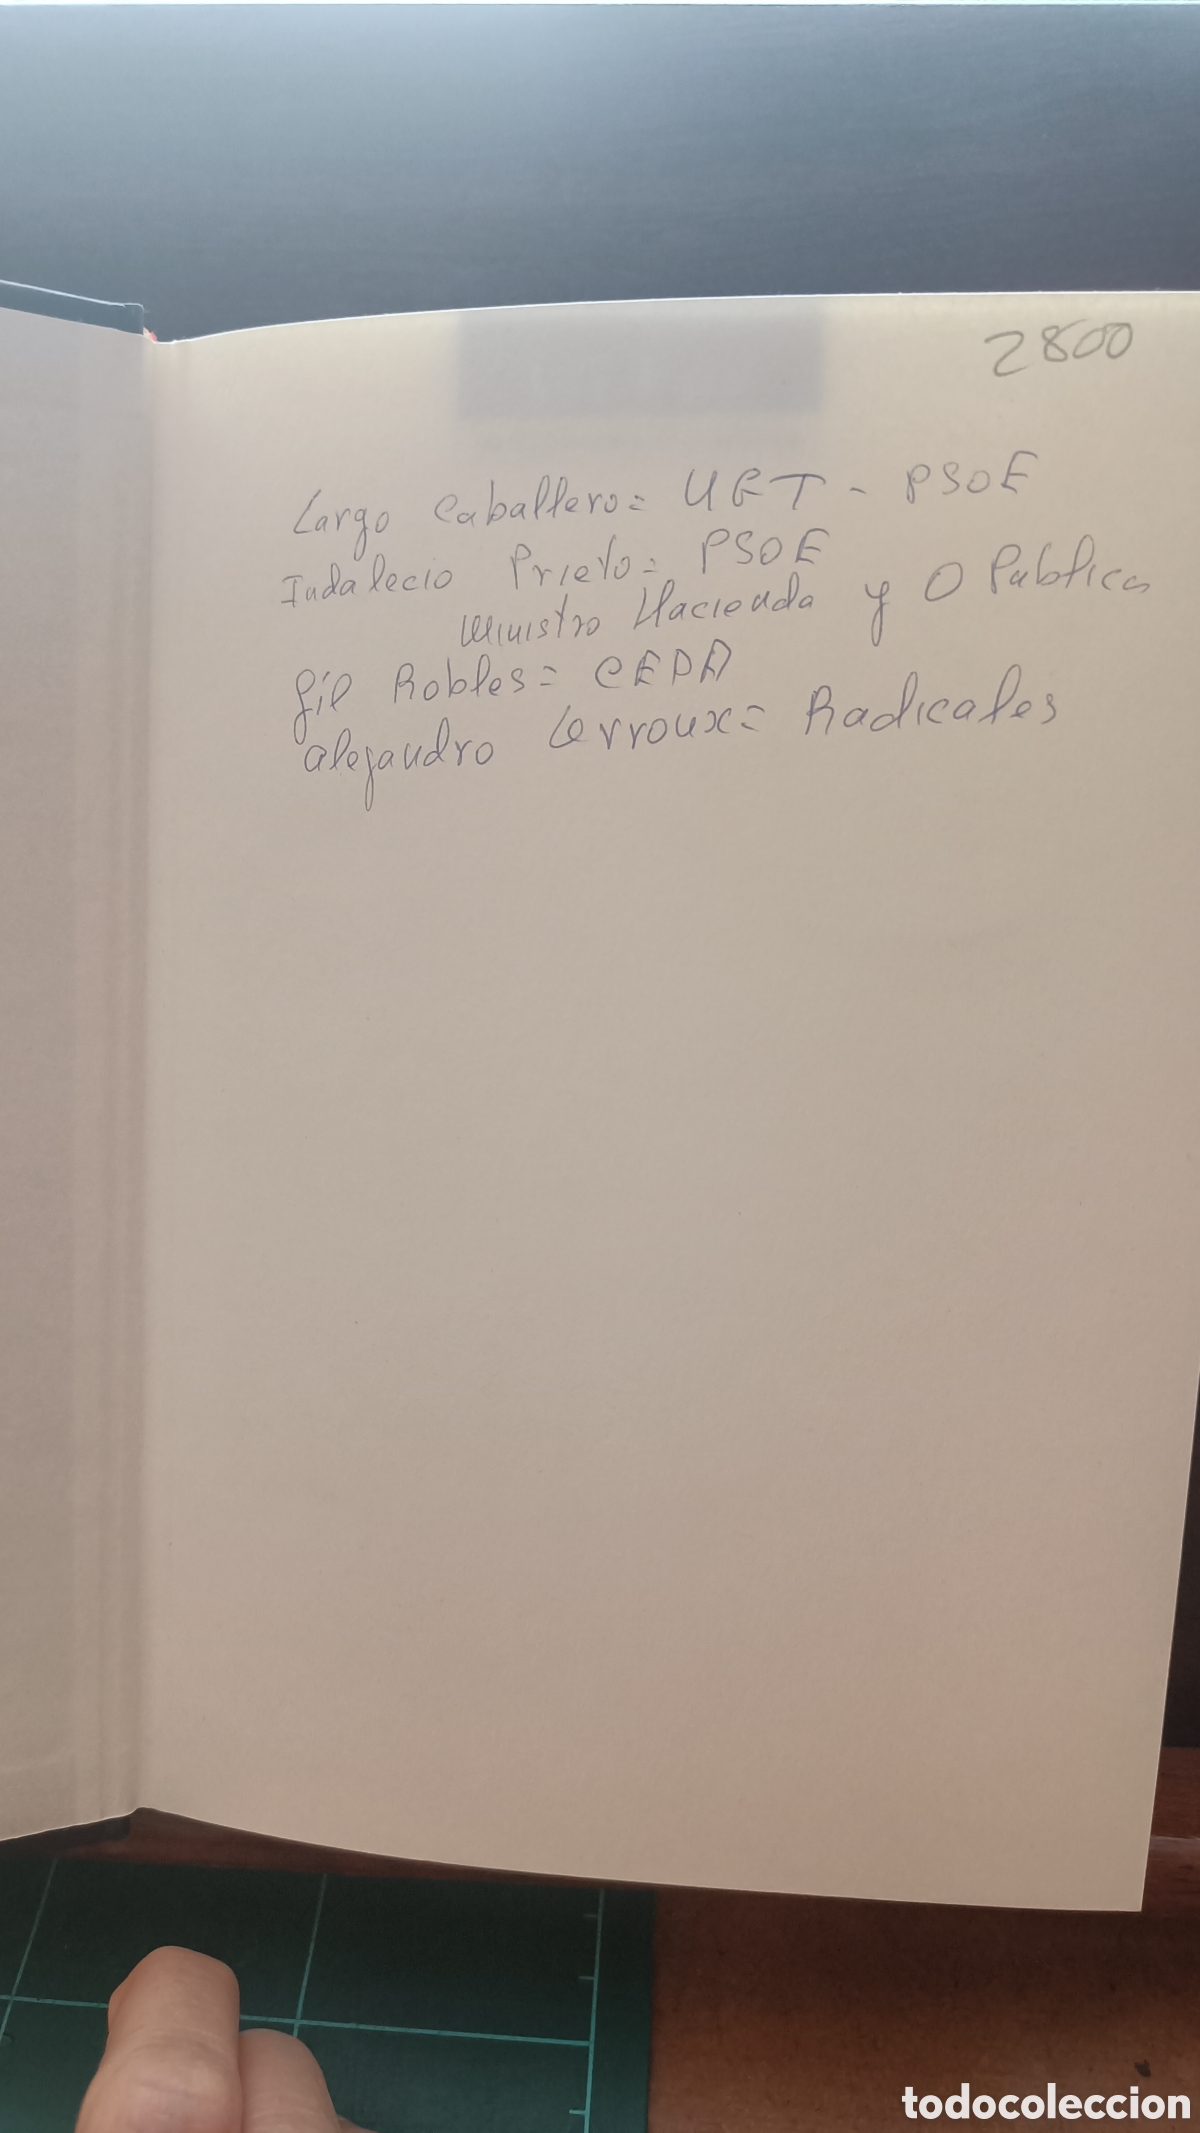 2800
Largo Caballero = UGT - PSOE
Indalecio Prieto = PSOE
Ministro Hacienda y O Publica
Gil Robles = CEDA
Alejandro Lerroux = Radicales
todocoleccion